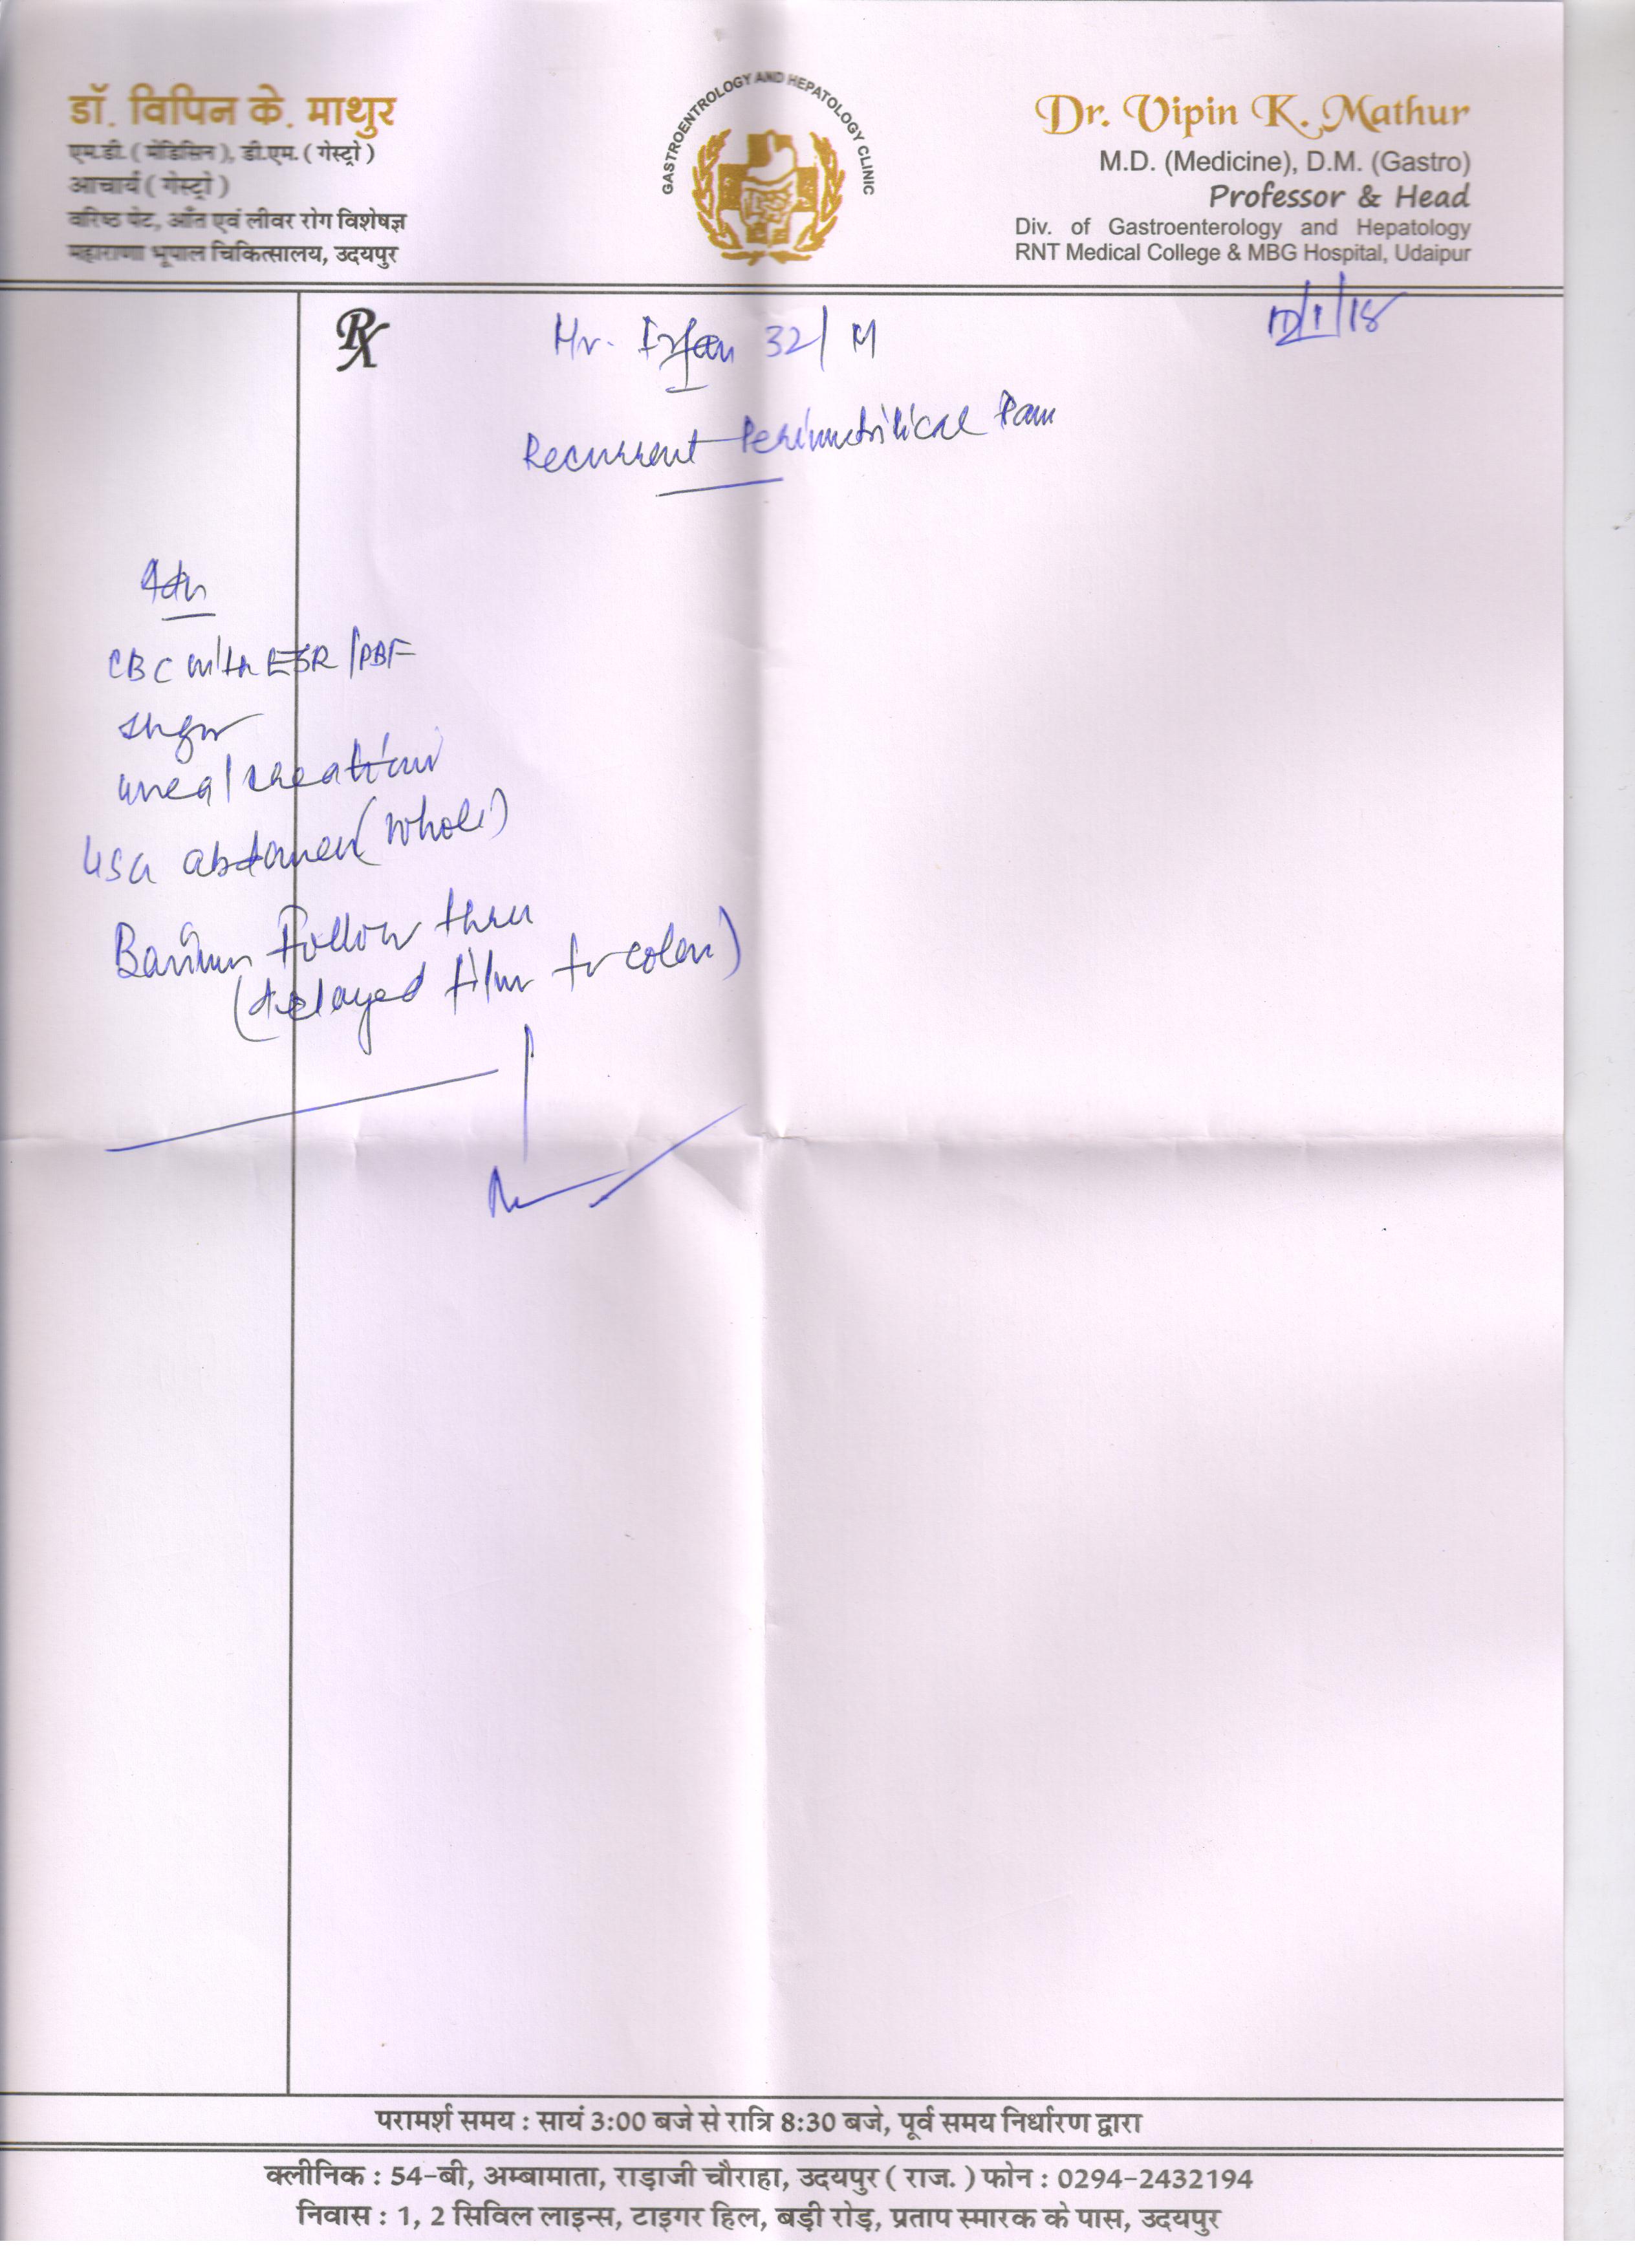 डॉ. विपिन के. माथुर
एम.डी. ( मेडिसिन ), डी.एम. ( गेस्ट्रो )
आचार्य ( गेस्ट्रो )
वरिष्ठ पेट, आँत एवं लीवर रोग विशेषज्ञ
महाराणा भूपाल चिकित्सालय, उदयपुर
GASTROENTROLOGY AND HEPATOLOGY CLINIC
Dr. Vipin K. Mathur
M.D. (Medicine), D.M. (Gastro)
Professor & Head
Div. of Gastroenterology and Hepatology
RNT Medical College & MBG Hospital, Udaipur
Rx
Mr. Irfan 32/M
Recurrent Periumbilical Pain
Adv
CBC with ESR/PBF
Sugar
urea/creatinine
USG abdomen (whole)
Barium Follow thru
(delayed film for colon)
परामर्श समय : सायं 3:00 बजे से रात्रि 8:30 बजे, पूर्व समय निर्धारण द्वारा
क्लीनिक : 54-बी, अम्बामाता, राड़ाजी चौराहा, उदयपुर ( राज. ) फोन : 0294-2432194
निवास : 1, 2 सिविल लाइन्स, टाइगर हिल, बड़ी रोड़, प्रताप स्मारक के पास, उदयपुर